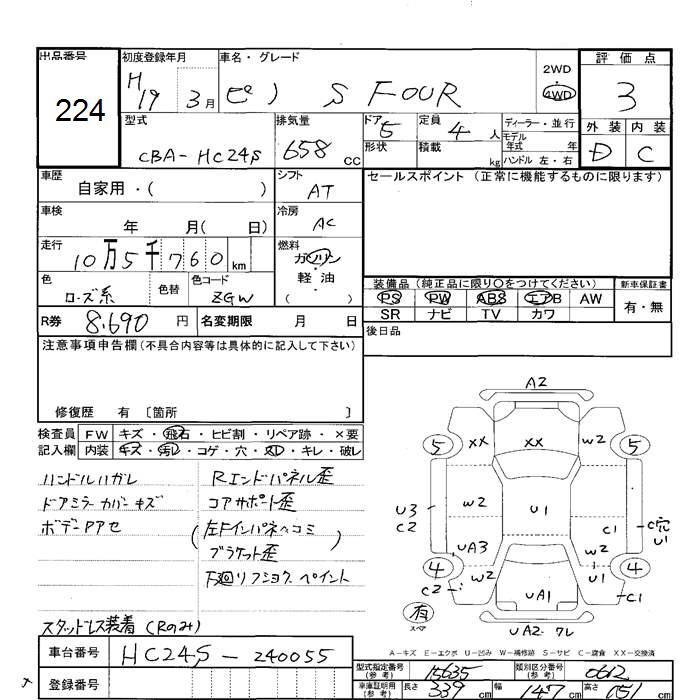 出品番号
224
初度登録年月
H19 3月
車名・グレード
ピノ S FOUR
2WD
4WD
評価点
3
外装 内装
D C
型式
CBA-HC24S
排気量
658 cc
ドア 5
形状
定員 4 人
積載 kg
ディーラー・並行
モデル年式 年式
ハンドル 左・右
車歴
自家用・( )
シフト
AT
セールスポイント(正常に機能するものに限ります)
車検
年 月( 日)
冷房
AC
走行
10万5千760 km
燃料
ガソリン
軽油
( )
色
ローズ系
色替
色コード
ZGW
装備品(純正品に限り〇をつけてください)
PS PW ABS エアB AW
SR ナビ TV カワ
新車保証書
有・無
R券 8,690 円
名変期限 月 日
後日品
注意事項申告欄(不具合内容等は具体的に記入して下さい)
修復歴 有 〔箇所 〕
検査員記入欄
FW キズ・飛石・ヒビ割・リペア跡・×要
内装 キズ・汚レ・コゲ・穴・スレ・キレ・破レ
ハンドルハガレ
ドアミラーカバーキズ
ボデーアアセ
Rエンドパネル歪
コアサポート歪
(左Fインパネヘコミ)
ブラケット歪
下廻リフシヨク ペイント
スタッドレス装着(Rのみ)
A2
5 XX XX W2 5
U3
C2
W2 U1 C1 C穴
U1
UA3 W2
U1
4 W2 4
C2 UA1 C1
有
スペア
UA2 ワレ
A-キズ E-エクボ U-凹み W-補修跡 S-サビ C-腐食 XX-交換済
車台番号
HC24S-240055
登録番号
型式指定番号
(参考)
15635
類別区分番号
(参考)
0612
車庫証明用
(参考)
長さ 339 cm
幅 147 cm
高さ 151 cm